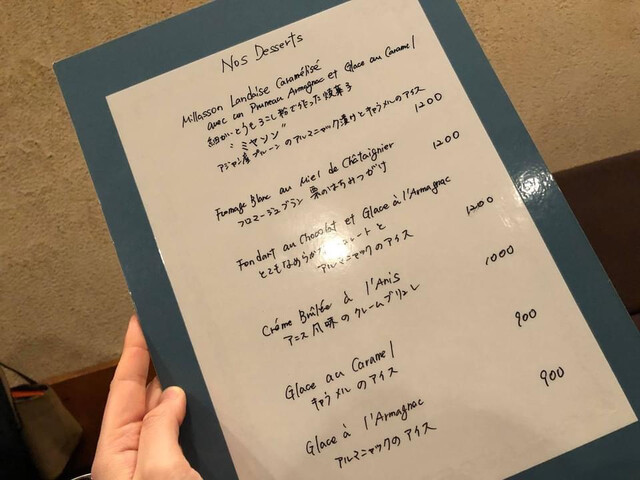 Nos Desserts
Millasson Landaise Caramélisé
avec un Pruneau Armagnac et Glace au Caramel
細かいとうもろこし粉で作った焼菓子
"ミヤソン"
アジャン産プルーンのアルマニャック漬けとキャラメルのアイス
1200
Fromage Blanc au Miel de Châtaignier
フロマージュブラン 栗のはちみつがけ
1200
Fondant au Chocolat et Glace à l'Armagnac
とてもなめらかな レートと
アルマニャックのアイス
1200
Créme Brûlée à l'Anis
アニス風味のクレームブリュレ
1000
Glace au Caramel
キャラメルのアイス
900
Glace à l'Armagnac
アルマニャックのアイス
900